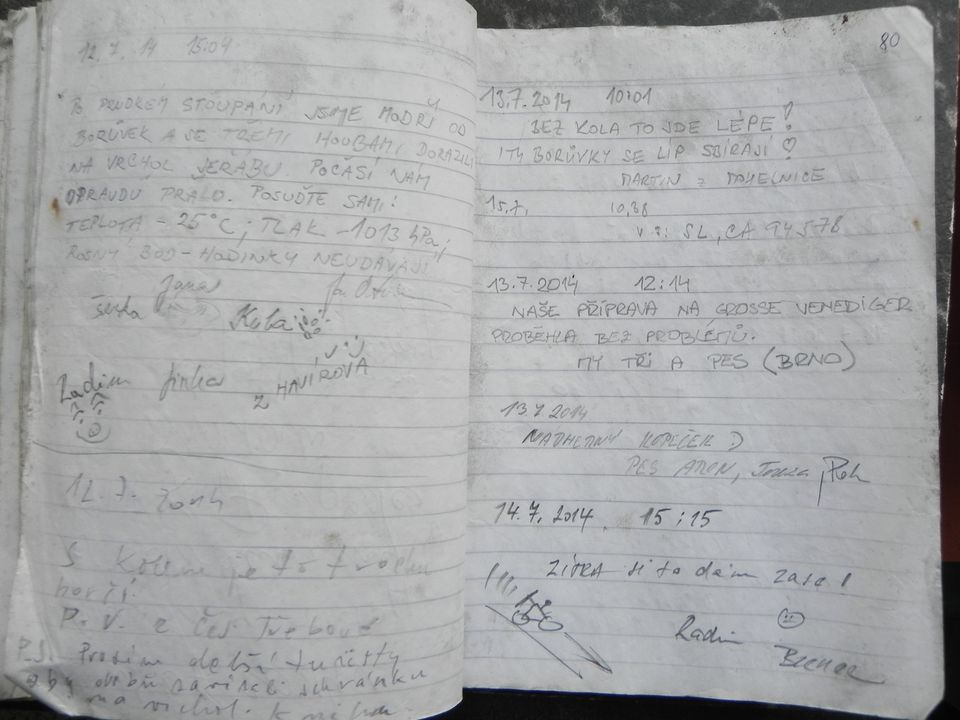 12.7.14 15:04
PO PRUDKÉM STOUPÁNÍ JSME MODŘÍ OD
BORŮVEK A SE TŘEMI HOUBAMI DORAZILI
NA VRCHOL JEŘÁBU POČASÍ NÁM
OPRAVDU PŘÁLO. POSUĎTE SAMI:
TEPLOTA - 25°C; TLAK - 1013 hPa;
ROSNÝ BOD - HODINKY NEUDÁVAJÍ
Jana
Kuba
Radim Jirka
Z HAVÍŘOVA
12.7. 2014
S kolem je to trochu
horší!
P. V. z Čes Třebové
P.S. Prosím další turisty
aby dobře zavírali schránku
na vrchol. knihu.
80
13.7.2014 10:01
BEZ KOLA TO JDE LÉPE!
I TY BORŮVKY SE LÍP SBÍRAJÍ ♡
MARTIN z MOHELNICE
15.7. 10,38
SL, CA 94578
13.7.2014 12:14
NAŠE PŘÍPRAVA NA GROSSE VENEDIGER
PROBĚHLA BEZ PROBLÉMŮ.
MY TŘI A PES (BRNO)
13.7.2014
NÁDHERNÝ KOPEČEK :)
PES ARON,
14.7.2014 15:15
ZÍTRA si to dám zase!
Radim